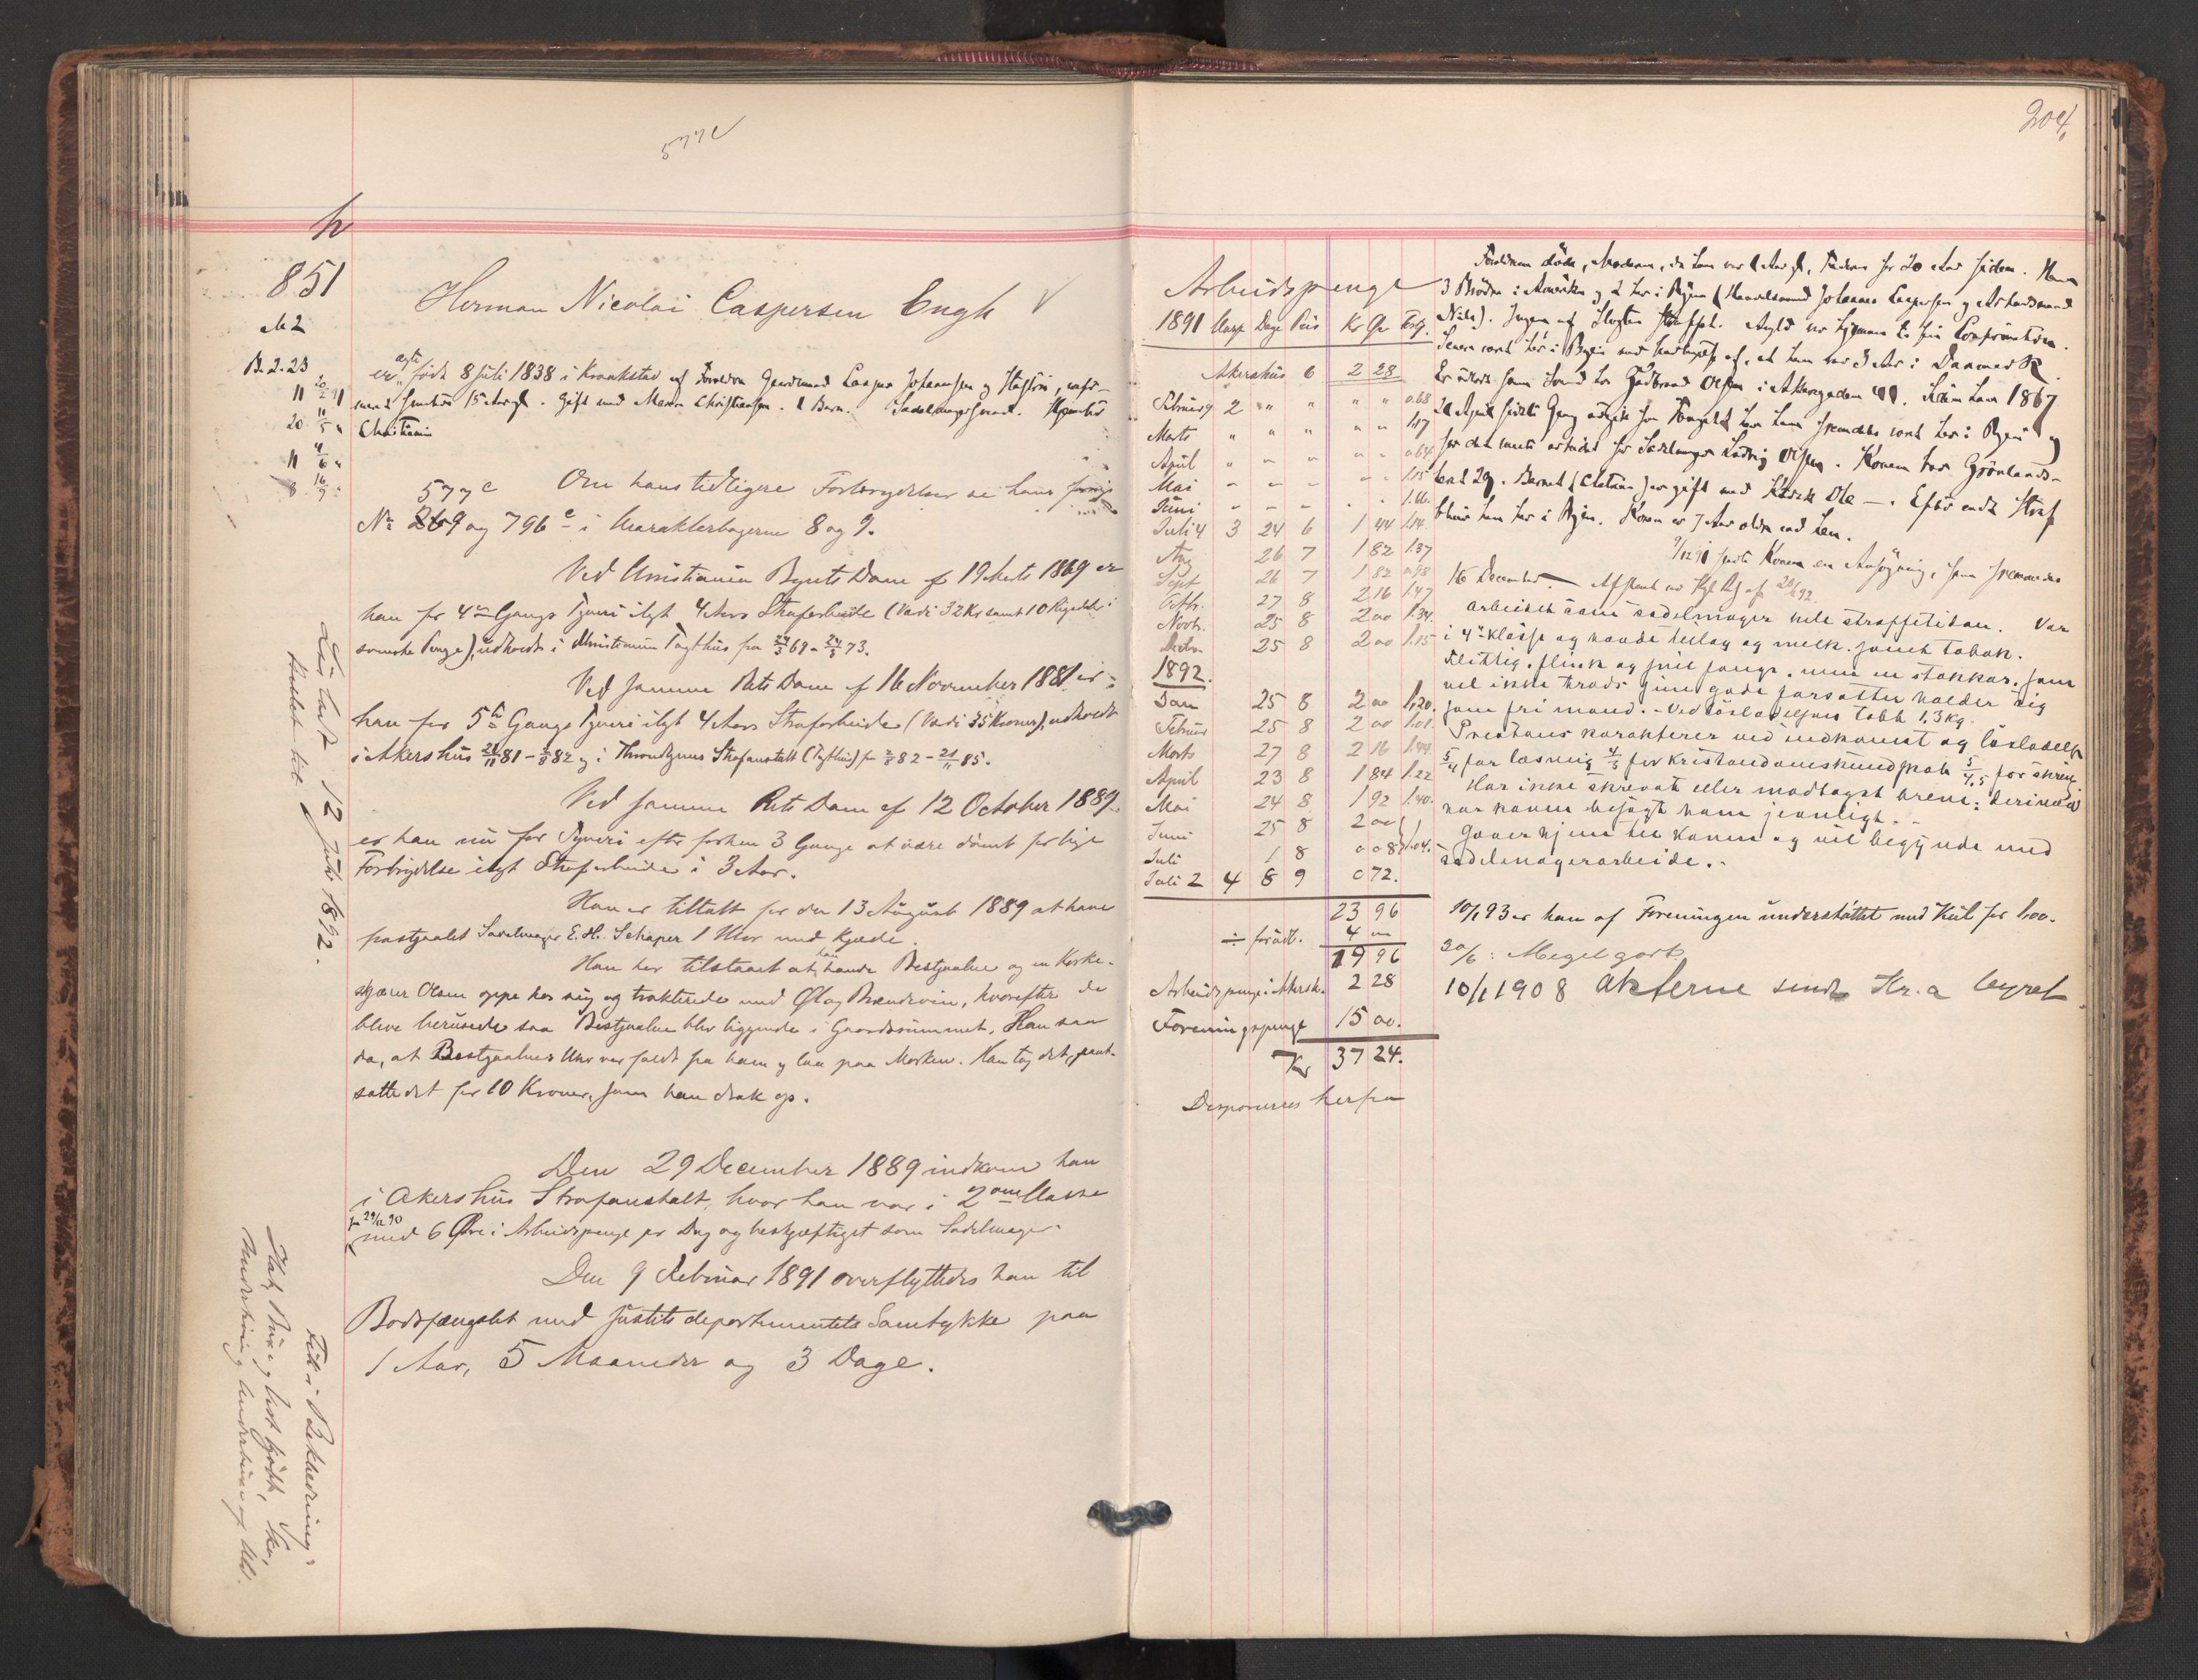 577c
h
851
M 2
B. 2. 23
11 20/2 91
20 11/5 "
11 4/6 "
8 16/9
Herman Nicolai Caspersen Engh
er ægte født 8 Juli 1838 i af Forældre Gaardmand Casper Johannesen og Hustru
15 Aar gl. Gift med Maren Christiansen. 1 Barn. Sadelmagersvend. Hjemhør
Christiania
577c Om hans tidligere Forbrydelser se hans forrige
No 869 og 796c i Karakterbøgerne 8 og 9.
Ved Christiania Byrets Dom af 19 Marts 1869 er
han for 4de Gangs Tyveri ilagt 4 Aars Strafarbeide (Værdi 32 Kr samt 10 Rigsdaler i
svenske Penge), udholdt i Christiania Tugthus fra 24/3 69 - 24/3 73.
Ved samme Rets Dom af 16 November 1881 er
han for 5te Gangs Tyveri ilagt 4 Aars Strafarbeide (Værdi 35 Kroner), udholdt
i Akershus 21/11 81 - 82 og i Throndhjems Strafanstalt (Tugthus) fra 82 - 21/11 85.
Ved samme Rets Dom af 12 October 1889
er han nu for Tyveri efter forhen 3 Gange at være dømt for lige
Forbrydelse ilagt Strafarbeide i 3 Aar.
Han er tiltalt for den 13 August 1889 at have
frastjaalet Sadelmager E. H. Schaper 1 Uhr med Kjæde.
Han har tilstaaet at han havde Bestjaalne og en Korke-
skjærer Olsen oppe hos sig og trakterede med Øl og Brændevin, hvorefter de
bleve berusede saa Bestjaalne blev liggende i Gaardsrummet. Han saa
da, at Bestjaalnes Uhr var faldt fra ham og laa paa Marken. Han tog det, pant-
satte det for 10 Kroner, som han drak op.
Den 29 December 1889 indkom han
i Akershus Strafanstalt, hvor han var i 2den Classe
fra 29/12 90
med 6 Øre i Arbeidspenge pr Dag og beskjæftiget som Sadelmager.
Den 9 Februar 1891 overflyttedes han til
Bodsfængslet med Justitsdepartementets Samtykke paa
1 Aar, 5 Maaneder og 3 Dage.
Løsladt 12 Juli 1892.
Holdet til
Fik i Beklædning:
Hat, Trøie, Vest, Sko,
204
Arbeidspenge
1891 Klasse Dage Pris Kr Øre Forbr.
Akershus 6 2 28
Februar 9 2 " " " " 0.68
Marts " " " " " 1.17
April " " " " " 0.64
Mai " " " " " 1.15
Juni " " " " " 1.66
Juli 4 3 24 6 1 44 1.14
Aug 26 7 1 82 1.37
Sept 26 7 1 82 0.98
Octb. 27 8 2 16 1.47
Novb. 25 8 2 00 1.34
Decbr 25 8 2 00 1.15
1892.
Jan 25 8 2 00 1.20
Februar 25 8 2 00 1.01
Marts 27 8 2 16 1.44
April 23 8 1 84 1.22
Mai 24 8 1 92 1.40
Juni 25 8 2 00
Juli 1 8 0 08 1.04
Juli 2 4 8 9 0 72.
23 96
÷ forådt. 4 00
19 96
Arbeidspenge i Akersh. 2 28
Foreningspenge 15 00.
Kr 37 24.
Disponeres herfra
Forældrene døde, Moderen, da han var Aar gl, Faderen for 20 Aar siden. Har
3 Brødre i Amerika og 2 her i Byen (Handelsmand Johannes Caspersen og Arbeidsmand
Nils). Ingen af Slægten straffet. Avlet var hjemme til sin Confirmation.
Senere været her i Byen med Undtagelse af, at han var 3 Aar i Danmark.
Er udlært som Svend hos Gudbrand Olsen i Akersgaden. Siden han 1867
21 April sidste Gang udgik fra Fængslet har han fremdeles været her i Byen og
for det meste arbeidet for Sadelmager Ludvig Olsen. Konen bor Grønlands-
leret 29. Barnet (Datter) er gift med Kusk Ole —. Efter endt Straf
bliver han her i Byen. Konen er 7 Aar ældre end han.
9/12 91 sendte Konen en Ansøgning, som fremsendtes
16 December. — Afslaaet ved Kgl Res af 20/2 92.
Arbeidet som sadelmager hele straffetiden. Var
i 4de klasse og havde tillæg og melk samt tobak.
Flittig, flink og snil fange, men en stakkar, som
vel ikke trods sine gode forsætter holder sig
som fri mand. - Ved løsladelsen tabt 1.3 kg.
Prestens karakterer ved indkomst og løsladelse
5/4 for læsning 4/5 for kristendomskundskab 5/4,5 for skriv.
Har ikke skrevet eller modtaget breve; derimod
har konen besøgt ham jevnligt. -
Gaaer hjem til konen og vil begynde med
sadelmagerarbeide. -
10/1 93 er han af Foreningen understøttet med Kul for 1.00.
20/6: Meget godt.
10/1 1908 Akterne sendt Kr.a byret